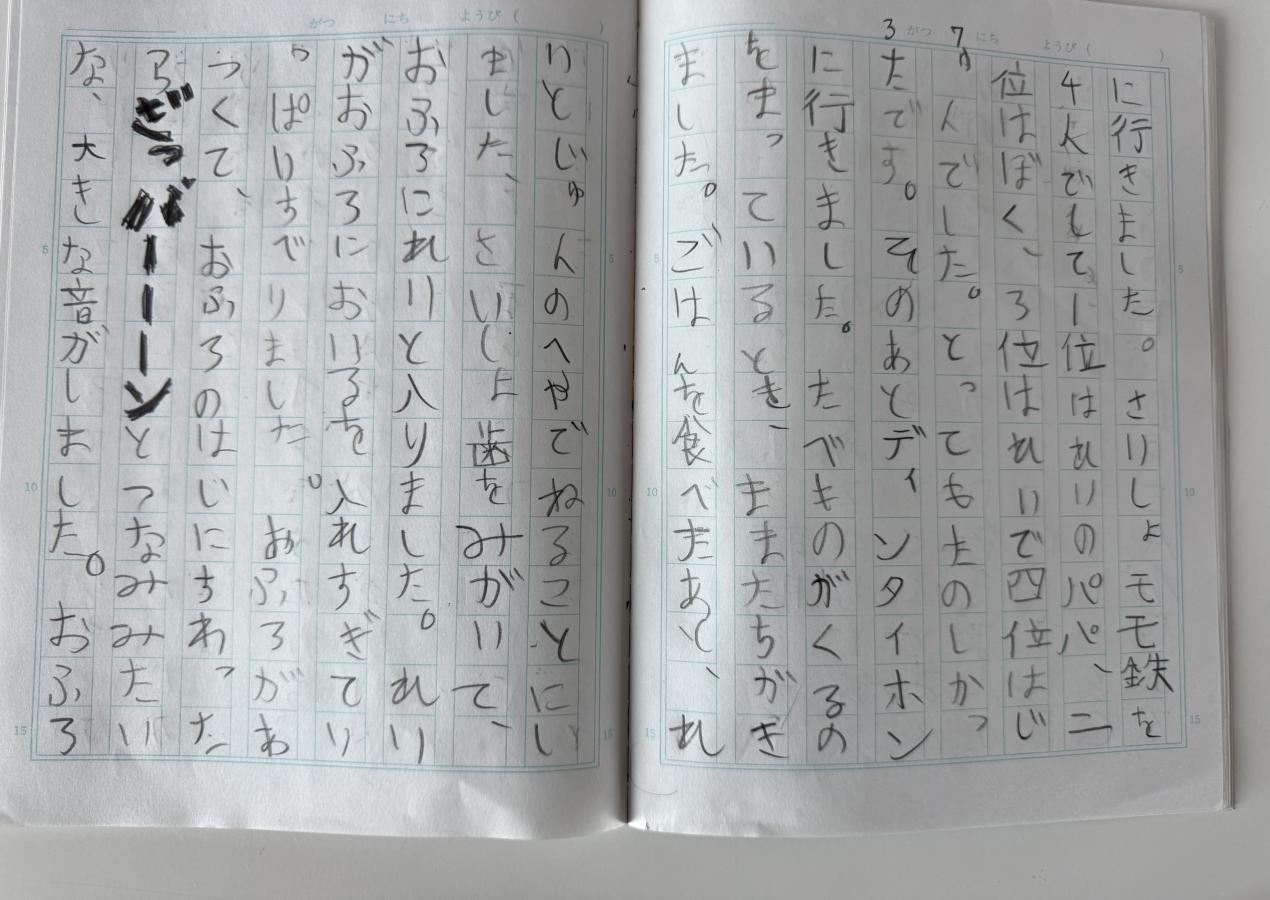 3がつ 7にち ようび( )
に行きました。さいしょモモ鉄を
4人でして1位はれいのパパ、二
位はぼく、3位はれいで四位はじ
ゅんでした。とってもたのしかっ
たです。そのあとディンタイホン
に行きました。たべものがくるの
をまっているとき、ままたちがき
ました。ごはんを食べたあと、れ
がつ にち ようび( )
いとじゅんのへやでねることにし
ました、さいしょ歯をみがいて、
おふろにれいと入りました。れい
がおふろにおいるを入れちぎてい
っぱいちでりました。おふろがあ
つくて、おふろのはじにちわった
らざっバーーーンとつなみみたい
な、大きな音がしました。おふろ
5
10
15
5
10
15